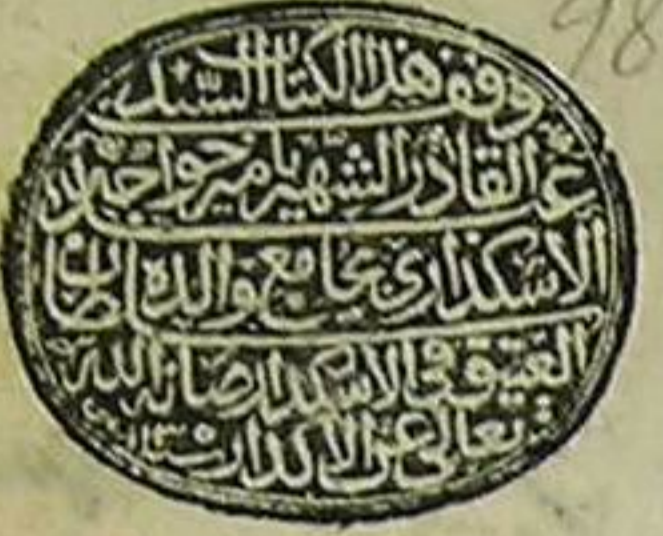 98
وقف هذا الكتاب السيد
عبد القادر الشهير بامير خواجه
الاسكداري بجامع والده سلطان
العتيق في الاسكدار صانه الله
تعالى عن الاكدار سنة